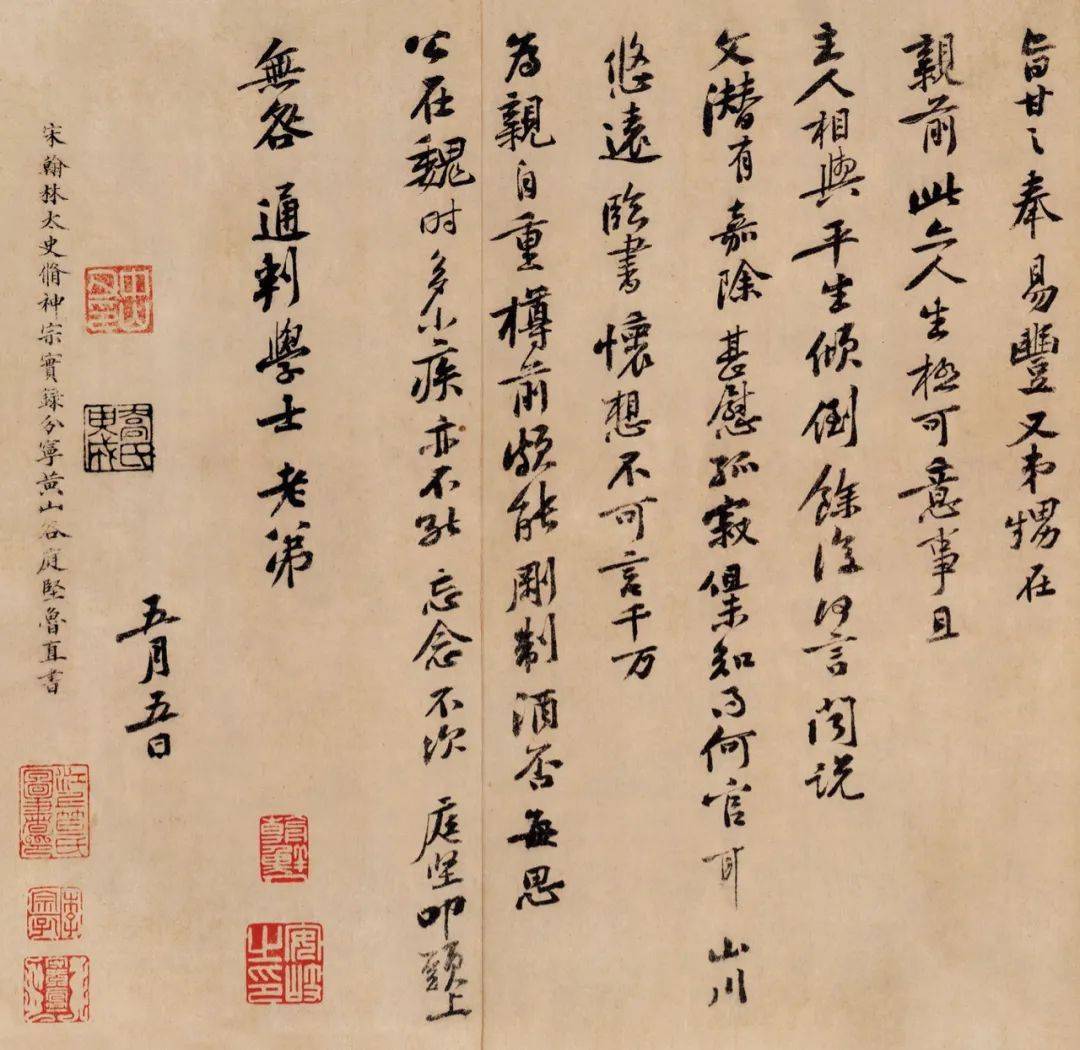 旨甘之奉易豐又弟甥在
親前此亦人生極可意事且
主人相與平生傾倒餘復何言聞說
文潛有嘉除甚慰孤寂但未知得何官耳 山川
悠遠臨書懷想不可言千万
為親自重樽前頗能剛制酒否每思
公在魏時多小疾亦不能忘念不次 庭堅叩頭上
無咎 通判學士 老弟
五月五日
宋翰林太史脩神宗實錄分寧黃山谷庭堅魯直書
安岐之印
江上笪氏圖書印